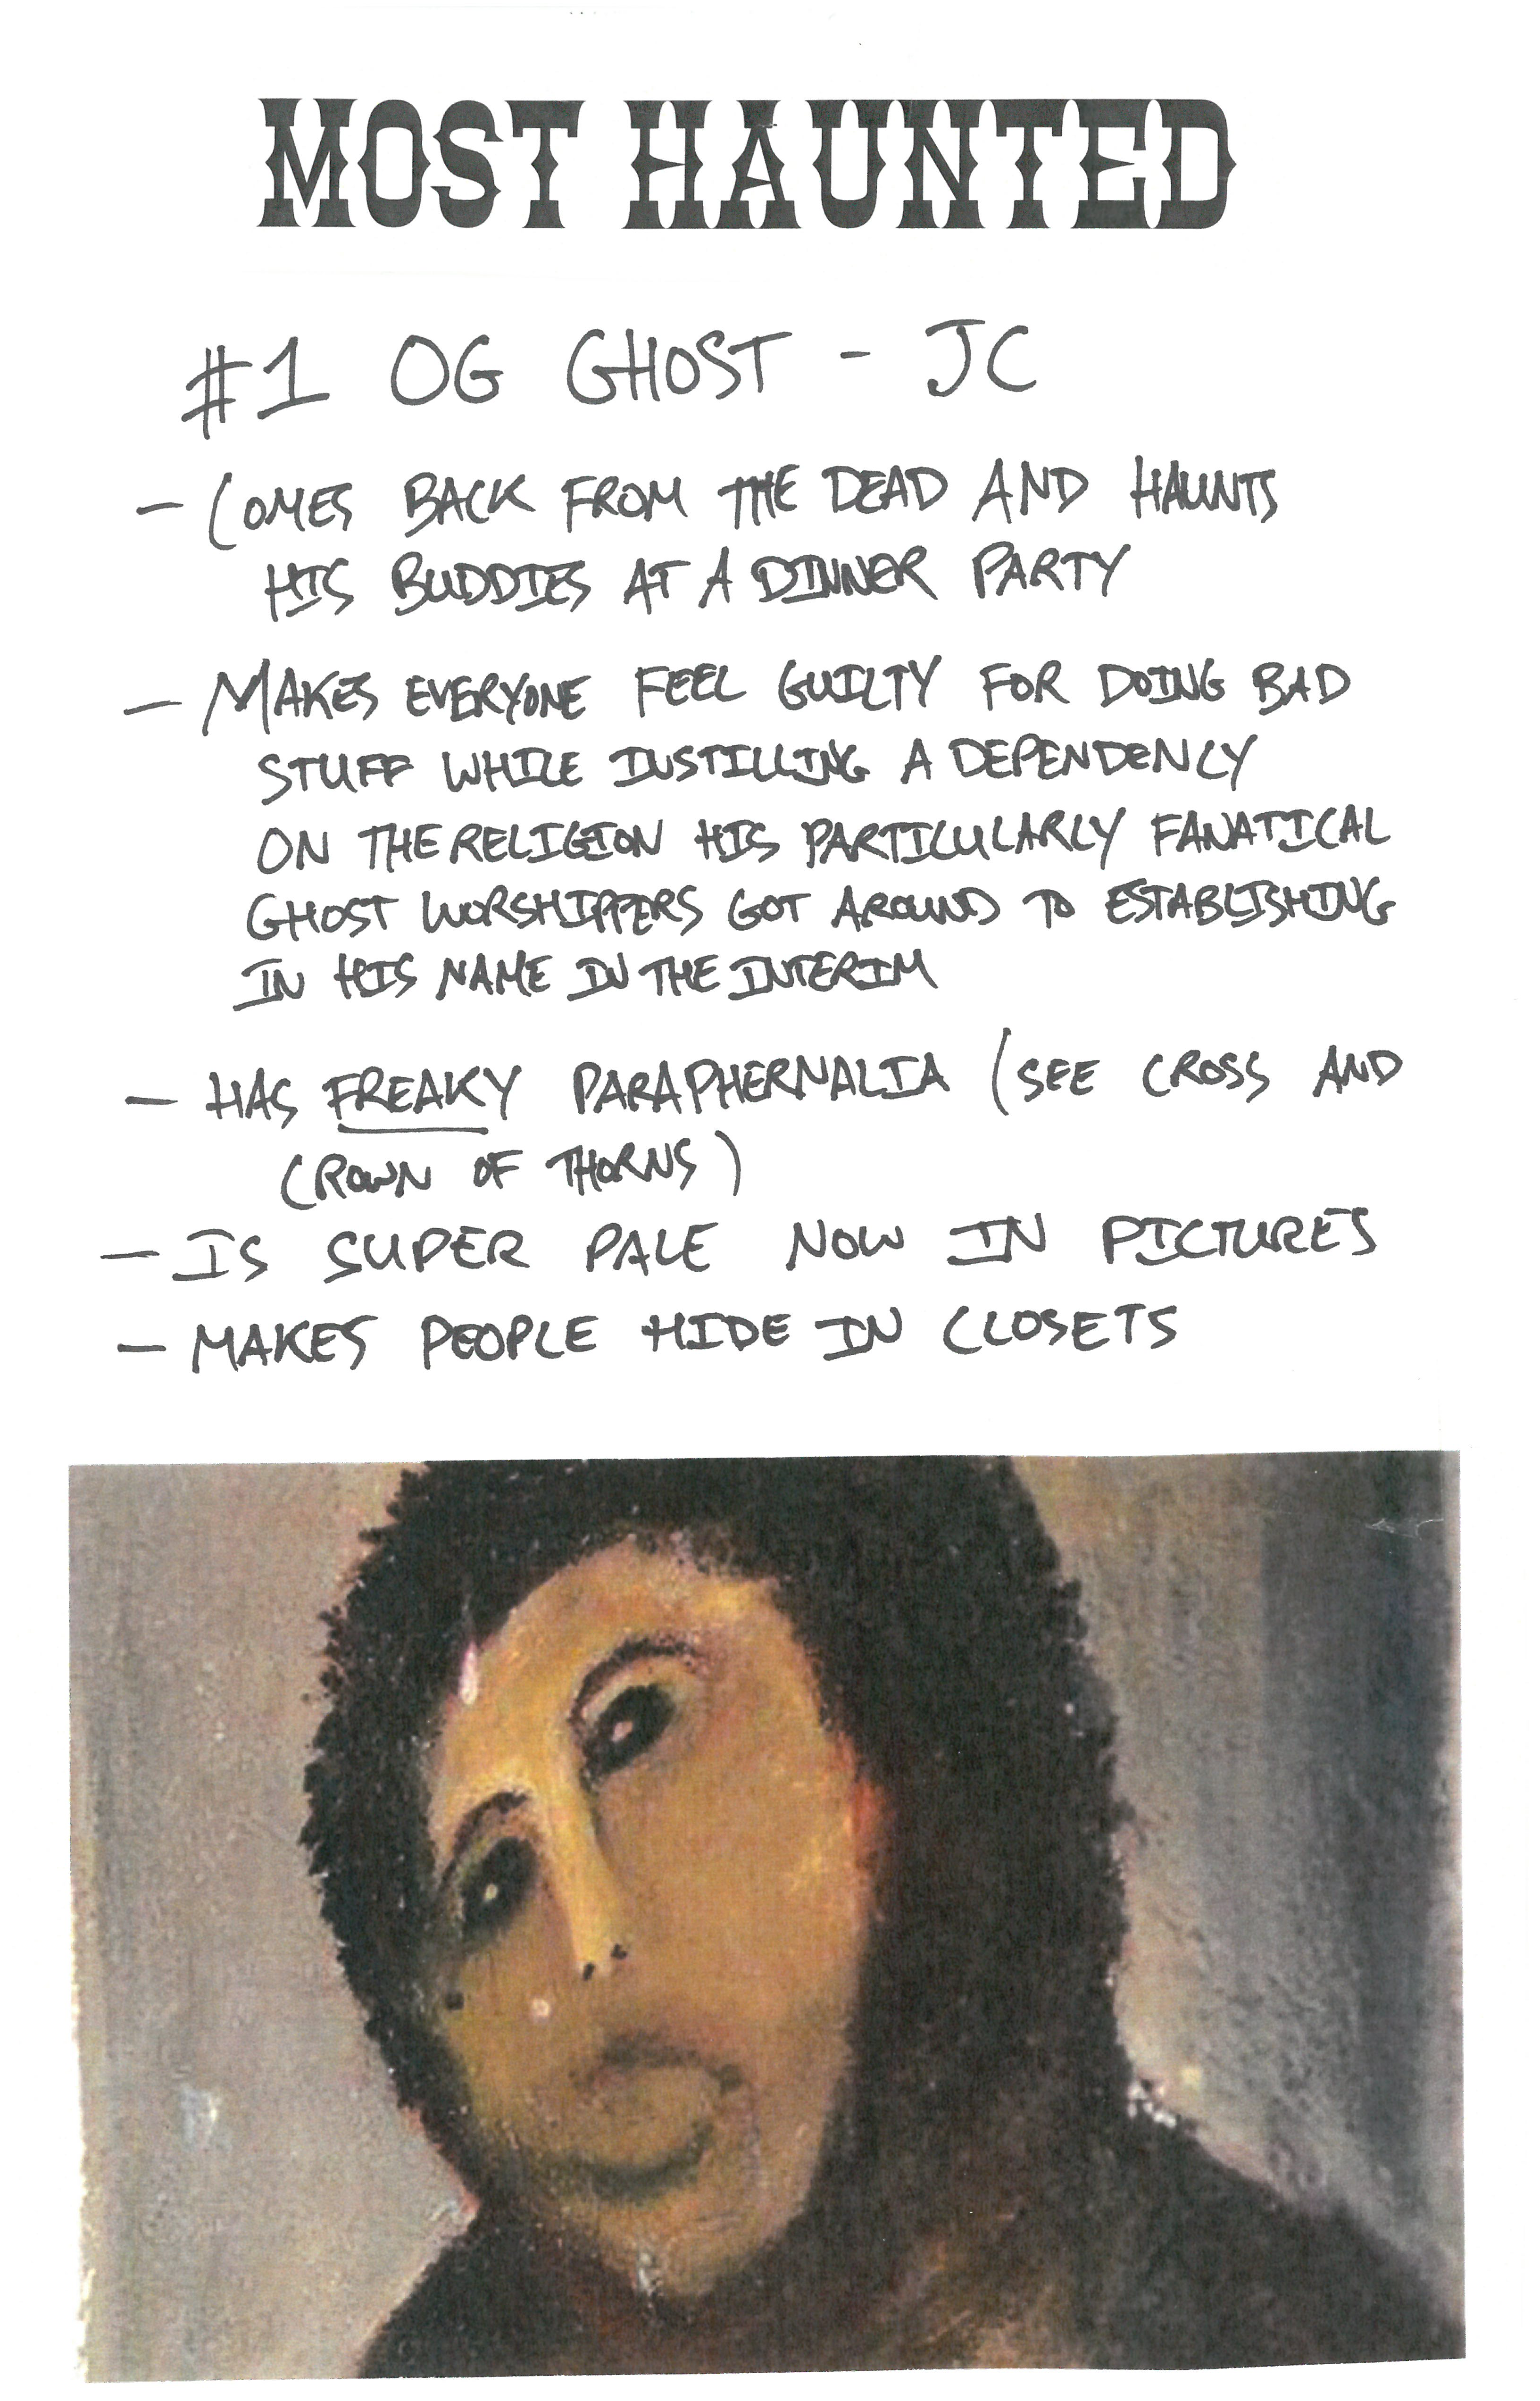 MOST HAUNTED
#1 OG GHOST - JC
- COMES BACK FROM THE DEAD AND HAUNTS
HIS BUDDIES AT A DINNER PARTY
- MAKES EVERYONE FEEL GUILTY FOR DOING BAD
STUFF WHILE INSTILLING A DEPENDENCY
ON THE RELIGION HIS PARTICULARLY FANATICAL
GHOST WORSHIPPERS GOT AROUND TO ESTABLISHING
IN HIS NAME IN THE INTERIM
- HAS FREAKY PARAPHERNALIA (SEE CROSS AND
CROWN OF THORNS)
- IS SUPER PALE NOW IN PICTURES
- MAKES PEOPLE HIDE IN CLOSETS